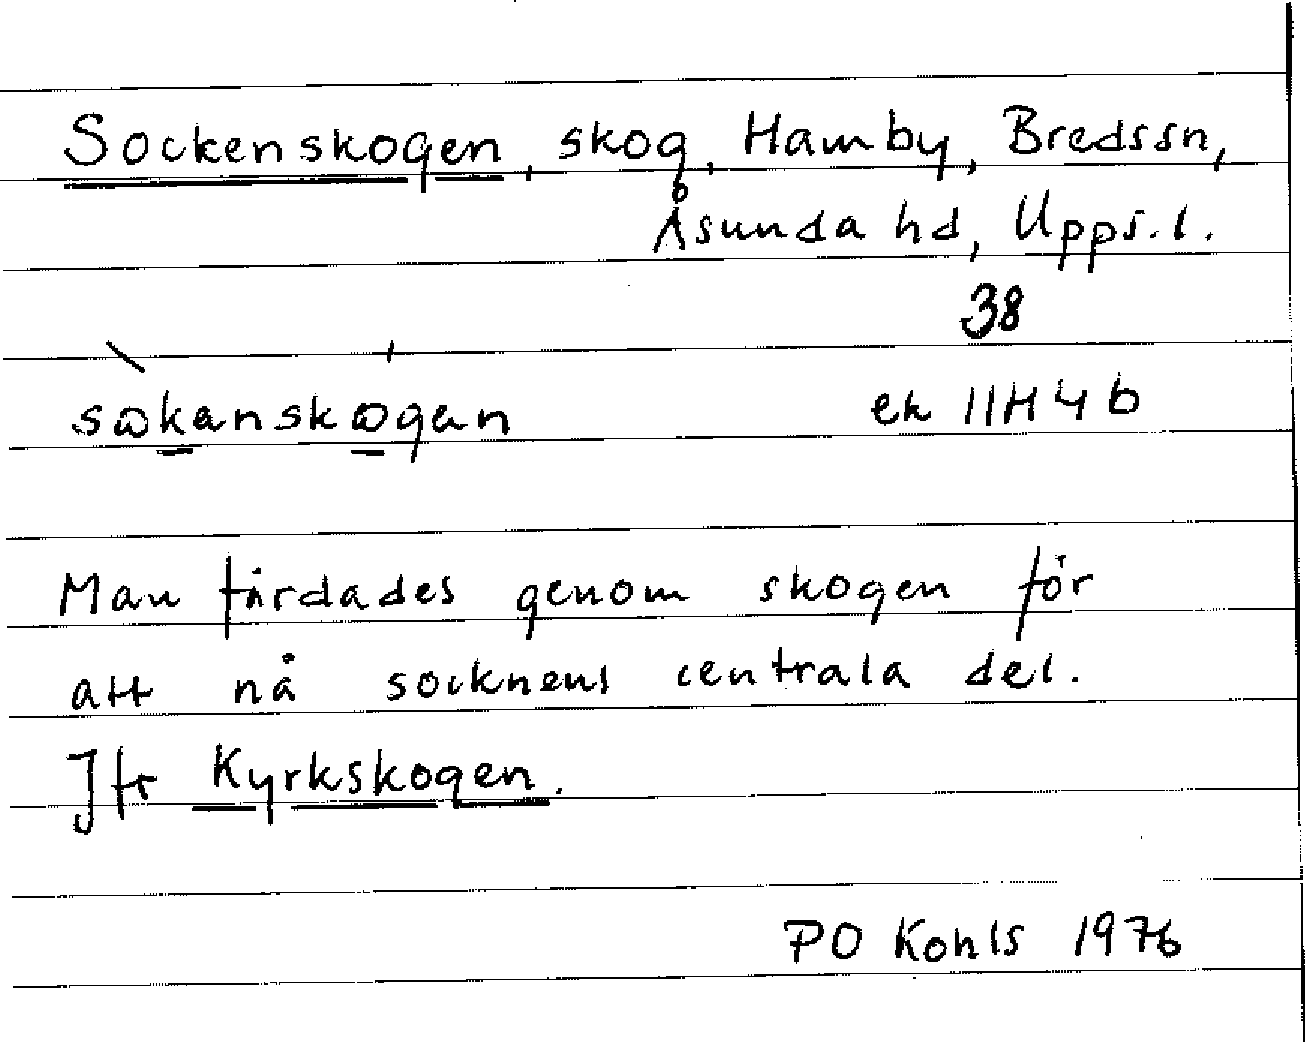 Sockenskogen, skog, Hamby, Bredssn,
Åsunda hd, Upps. l.
38
sωkanskωgan ek 11H4b
Man färdades genom skogen för
att nå socknens centrala del.
Jfr Kyrkskogen.
PO Kohls 1976